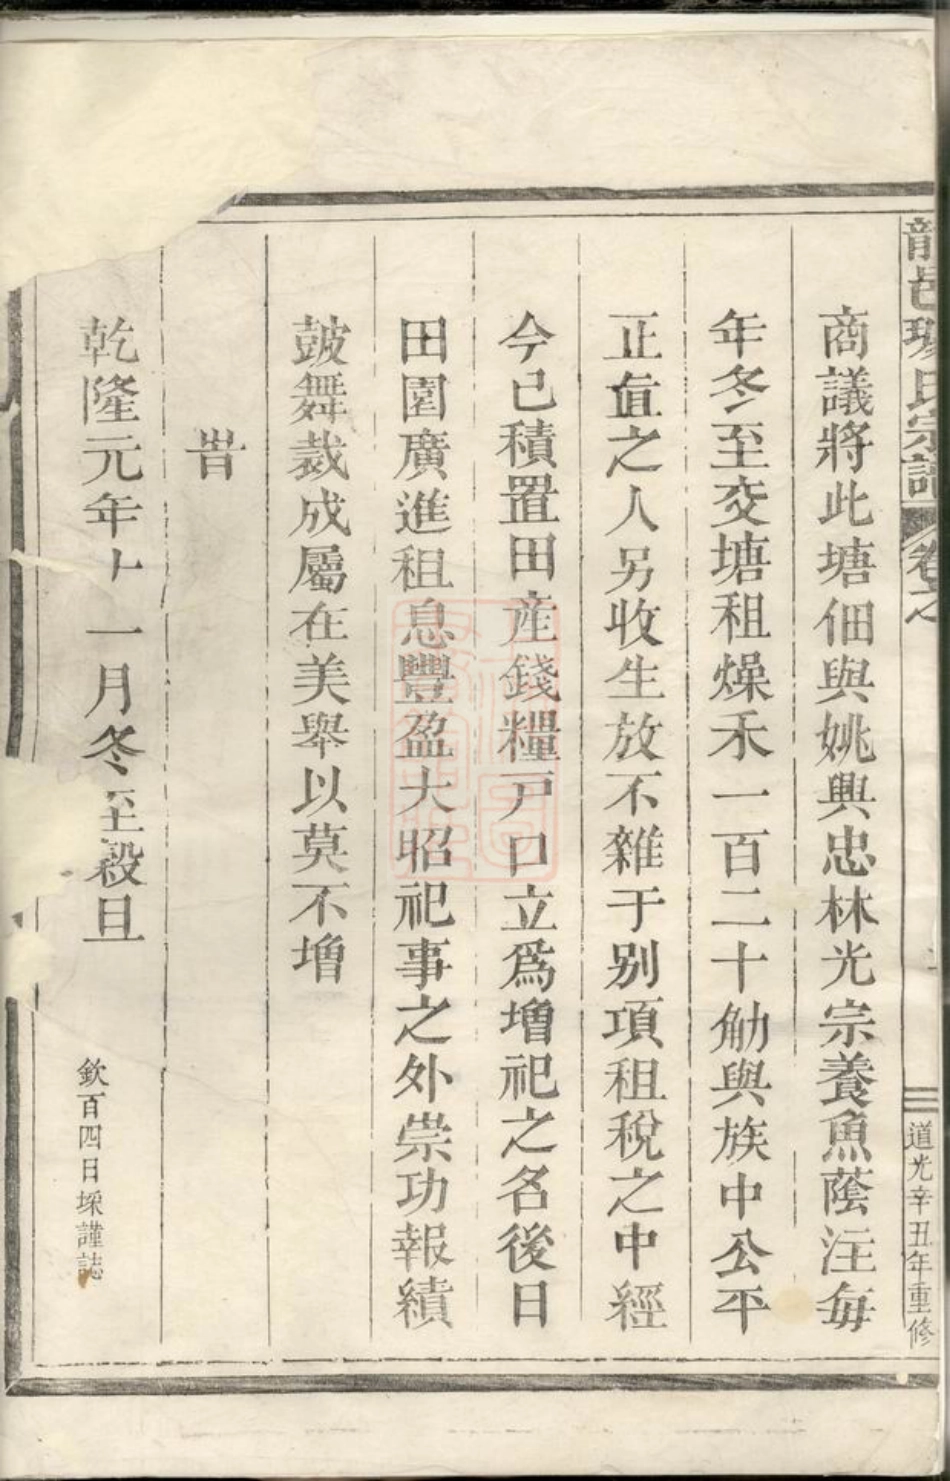 商議將此塘佃與姚興忠林光宗養魚蔭注每
年冬至交塘租燥禾一百二十觔與族中公平
正直之人另收生放不雜于别項租稅之中經
今已積置田產錢糧戸口立為增祀之名後日
田園廣進租息豐盈大昭祀事之外崇功報績
鼓舞裁成屬在美舉以莫不增
旹
乾隆元年十一月冬至穀旦
欽百四日埰謹誌
氏宗譜
卷之
道光辛丑年重修